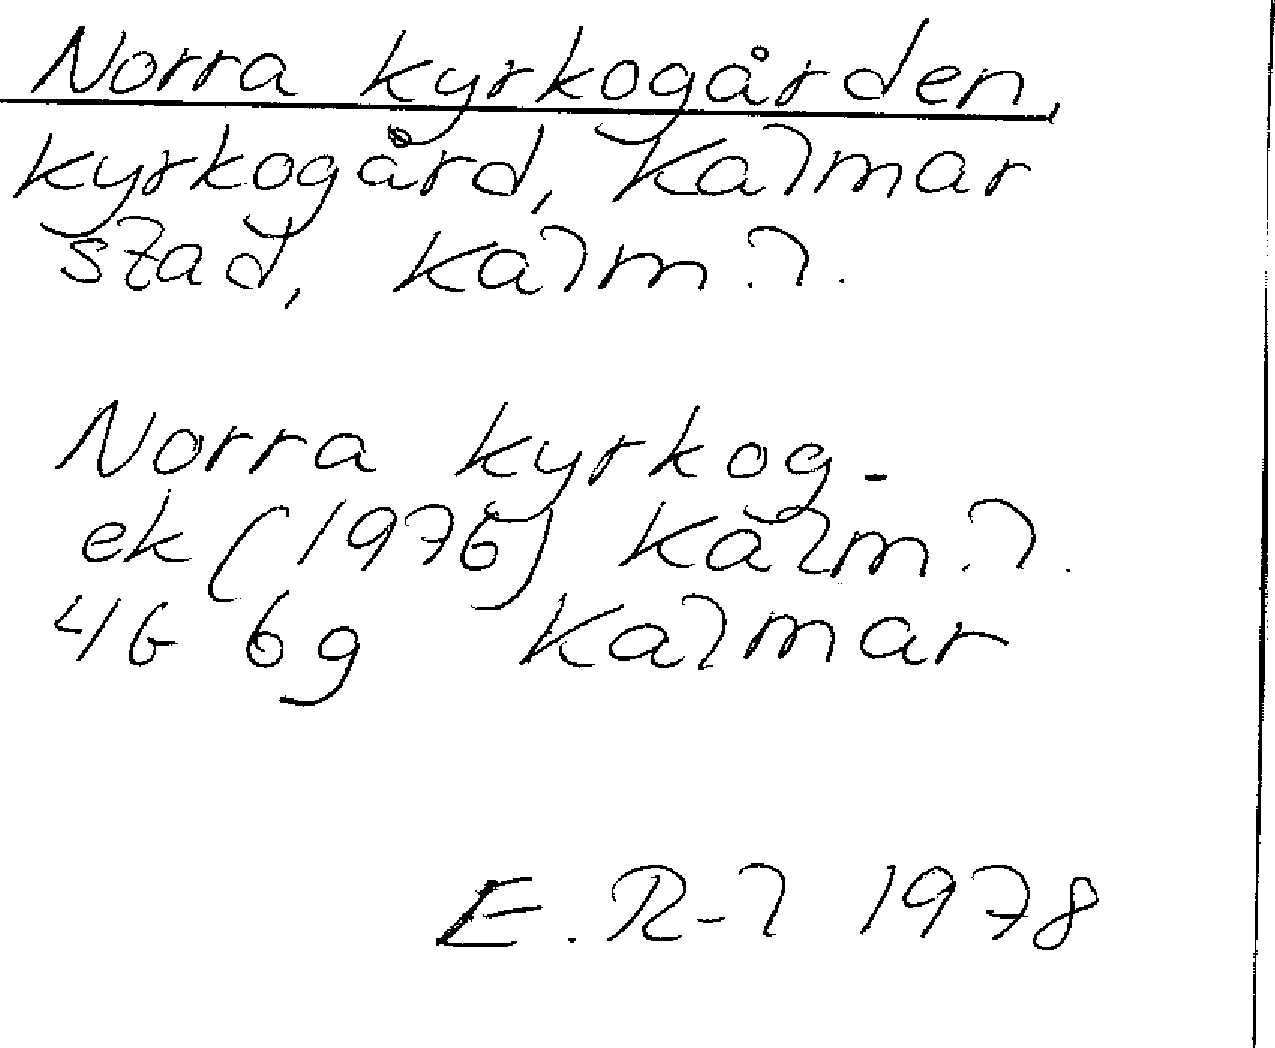 Norra kyrkogården,
kyrkogård, Kalmar
stad, Kalm. l.
Norra kyrkog -
ek (1976) Kalm. l.
4G 6g Kalmar
E. R-l 1978